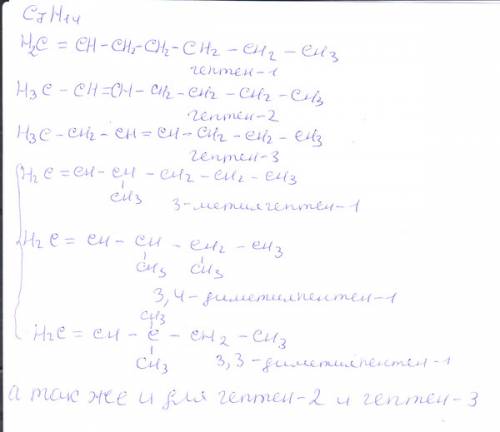 C7H14
H2C = CH-CH2-CH2-CH2-CH2-CH3
гептен-1
H3C - CH=CH-CH2-CH2-CH2-CH3
гептен-2
H3C-CH2-CH=CH-CH2-CH2-CH3
гептен-3
H2C=CH-CH-CH2-CH2-CH3
CH3 3-метилгептен-1
H2C = CH-CH-CH2-CH3
CH3 CH3
3,4-диметилпентен-1
CH3
H2C=CH-C-CH2-CH3
CH3 3,3-диметилпентен-1
а так же и для гептен-2 и гептен-3